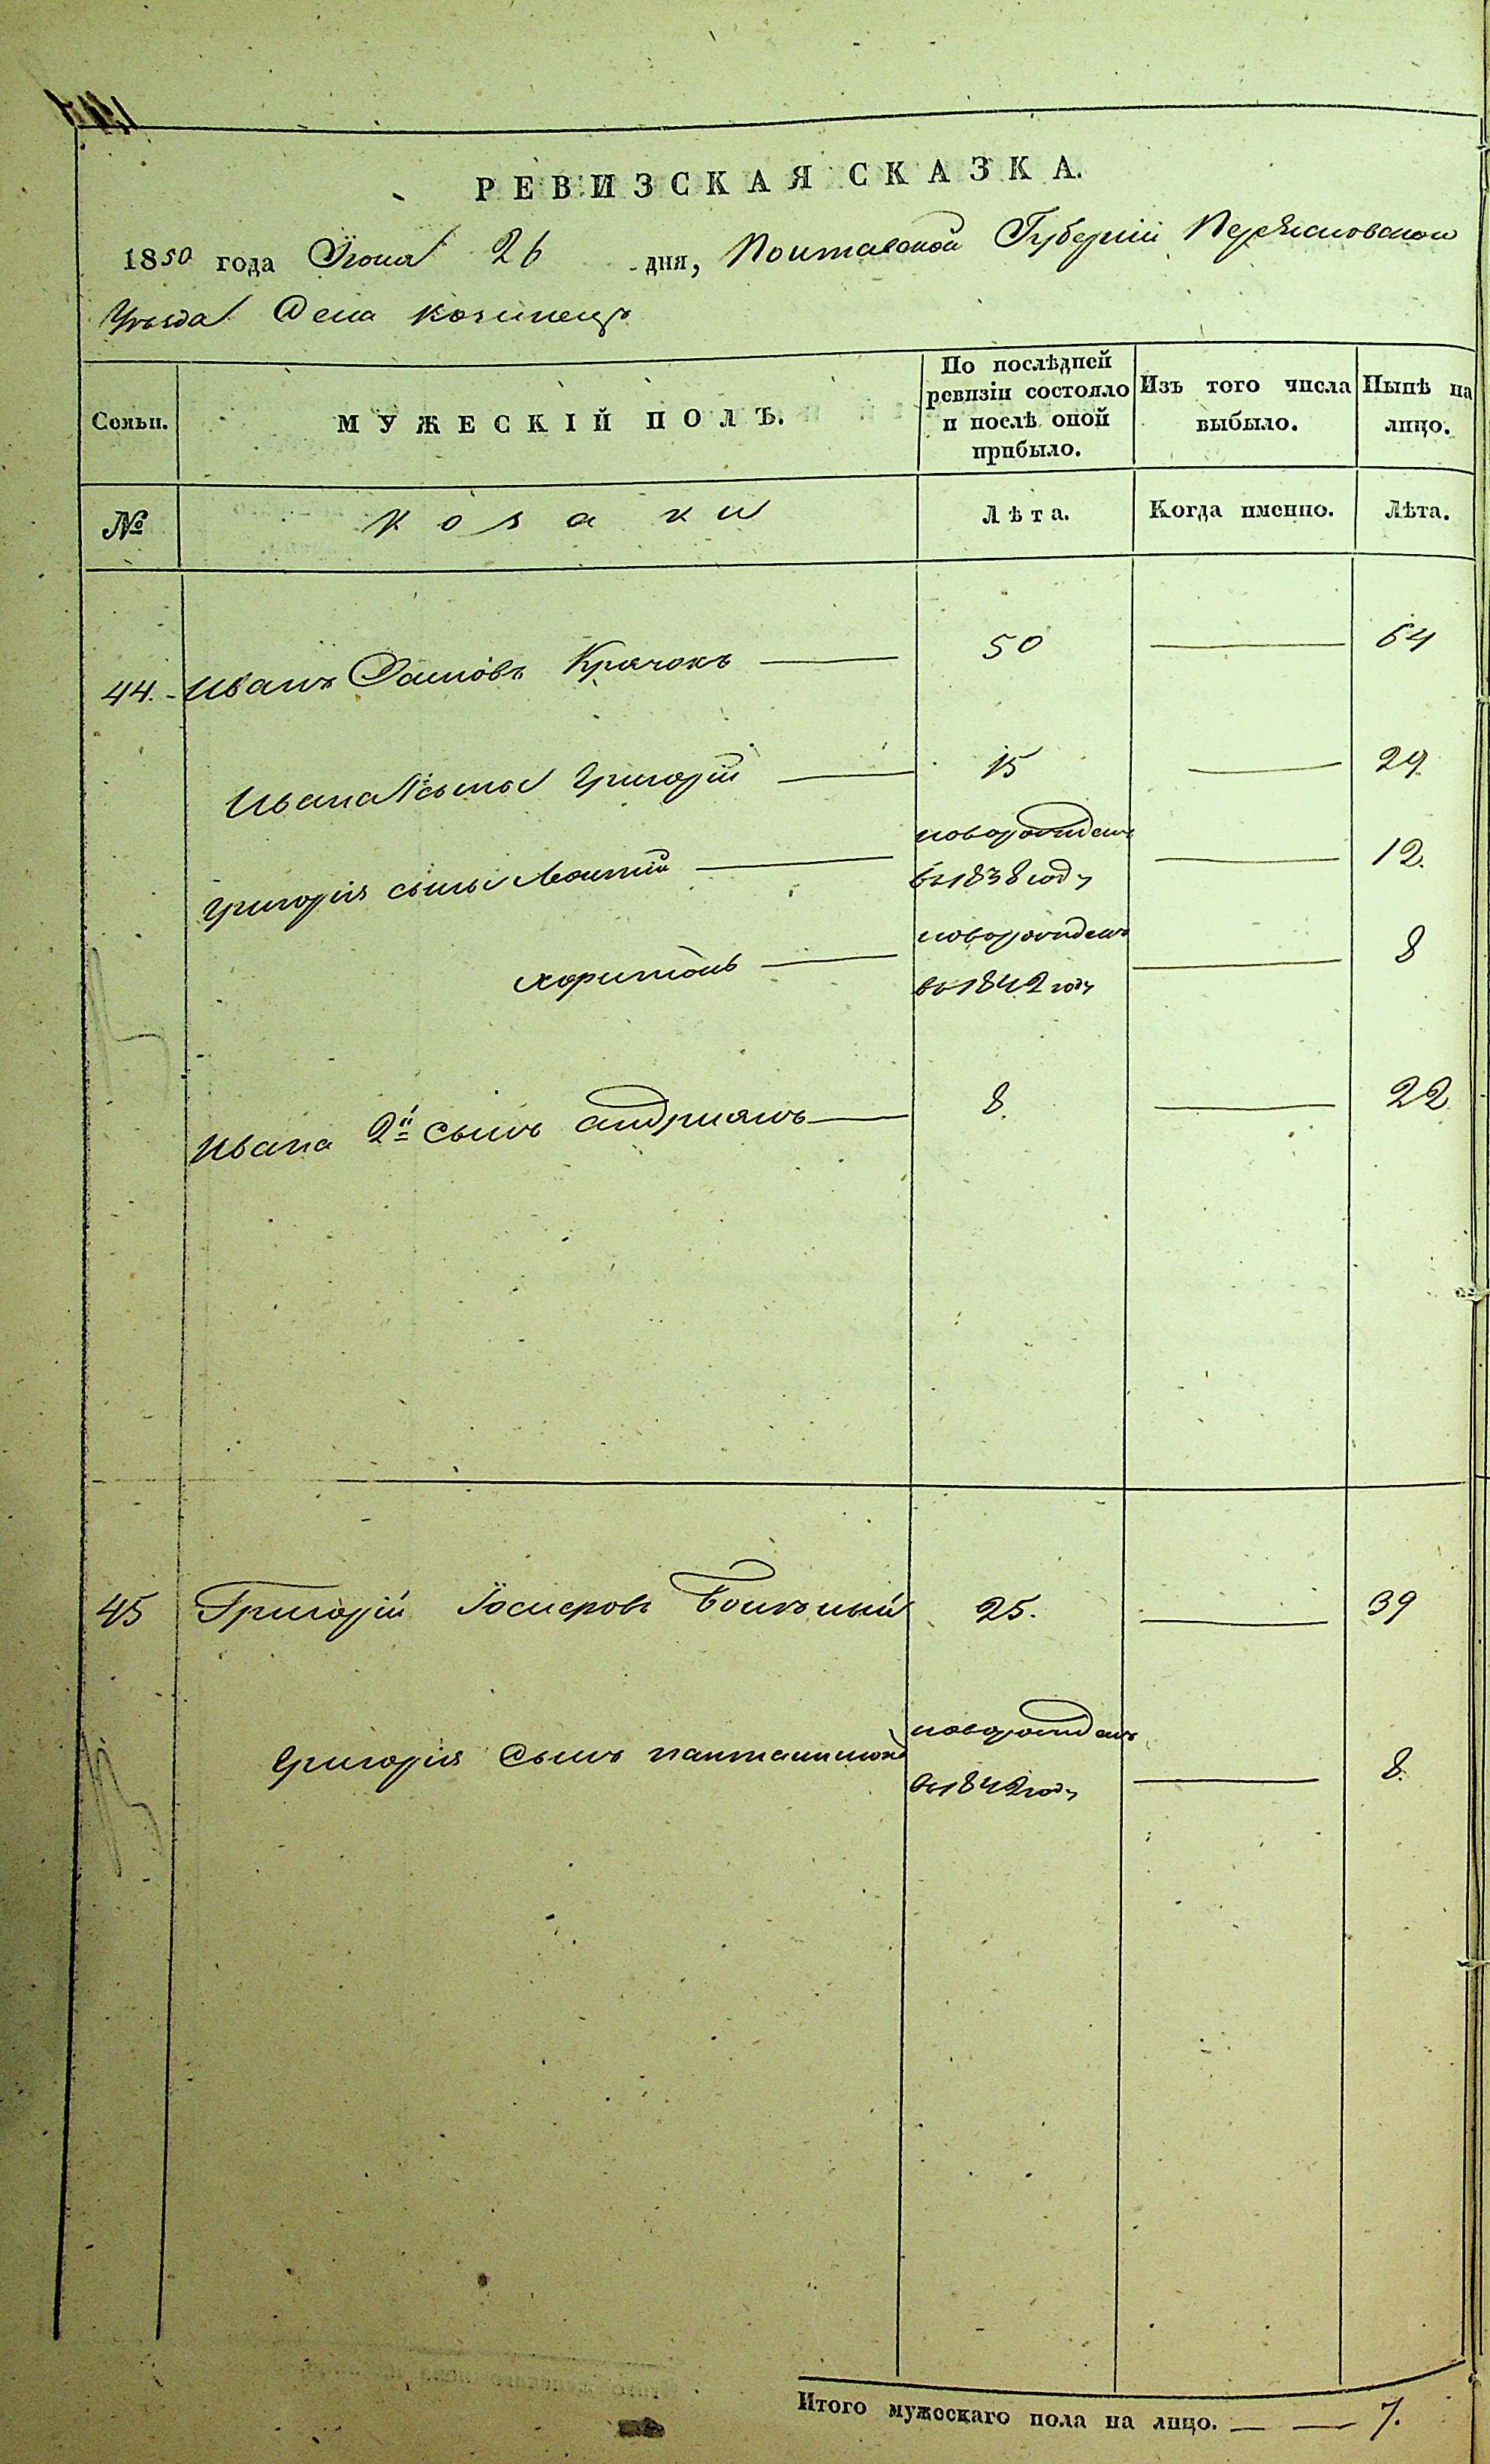 РЕВИЗСКАЯ СКАЗКА.
1850 года Іюня 26 дня, Полтавской Губерніи Переяславскаго
Уѣзда Села Козинецъ
Семьи. МУЖЕСКІЙ ПОЛЪ. По послѣдней ревизіи состояло и послѣ оной прибыло. Изъ того числа выбыло. Нынѣ на лицо.
№ Козаки Лѣта. Когда именно. Лѣта.
44. Иванъ Крачокъ 50 64
Ивана сынъ Григорій 15 29
Григорія сынъ Леонтій новорожденъ въ 1838 году 12.
Харитонъ новорожденъ въ 1842 году 8
Ивана 2й сынъ Андриянъ 8. 22
45 Григорій 25. 39
Григорія Сынъ Пантелимонъ новорожденъ въ 1842 году 8.
Итого мужескаго пола на лицо. 7.